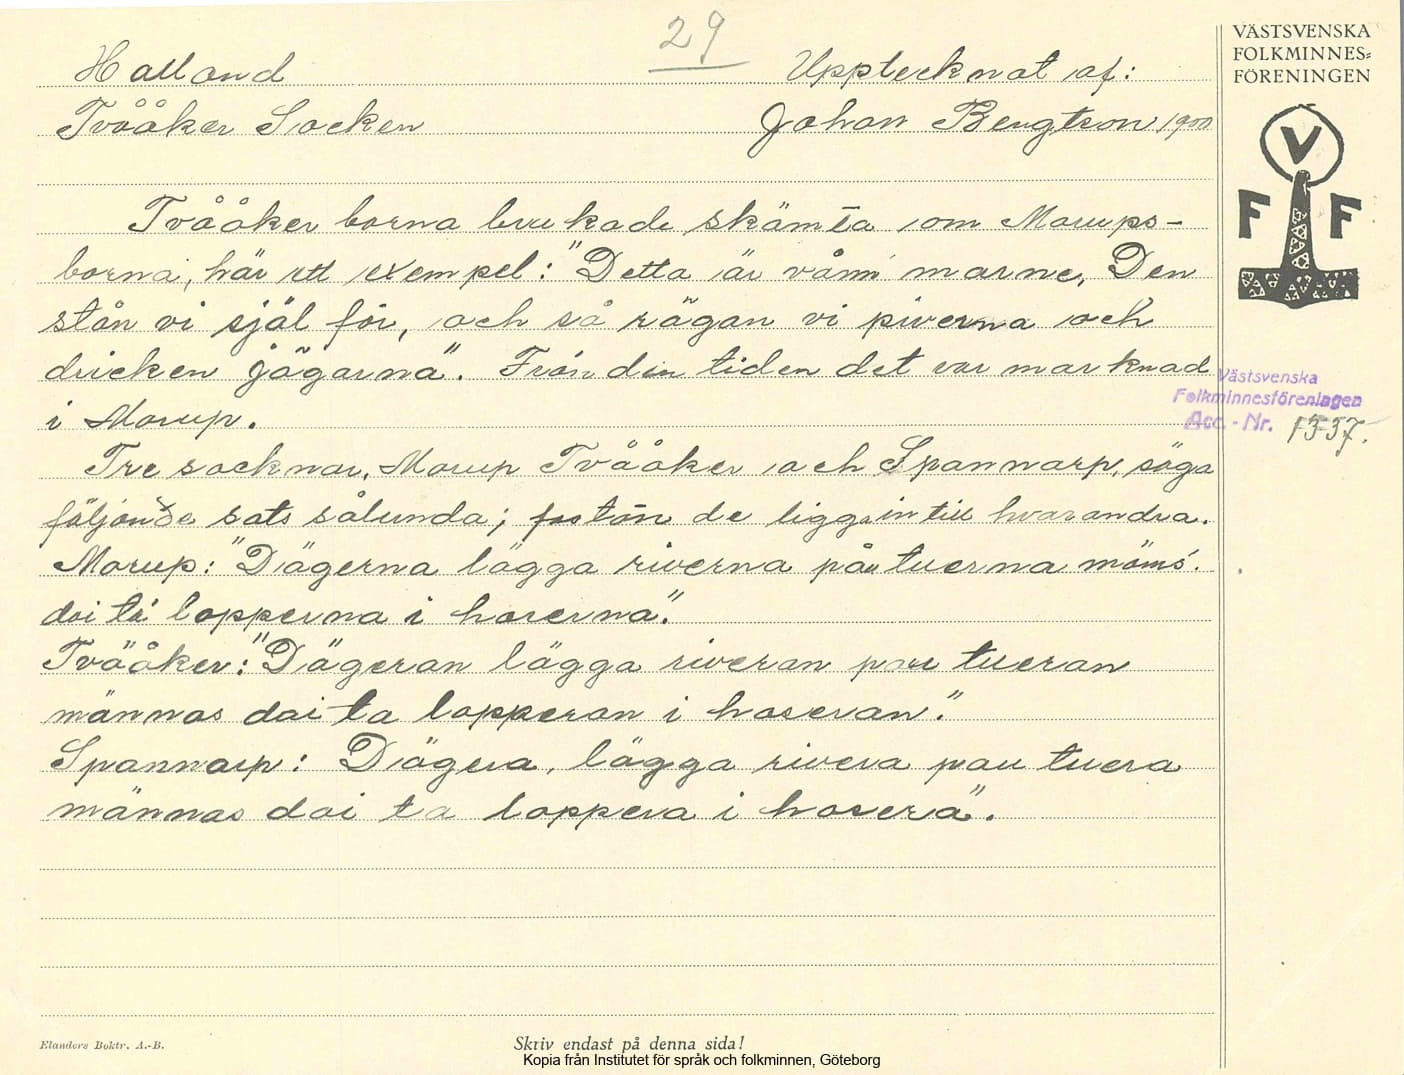 29
Halland
Upptecknat af:
VÄSTSVENSKA
FOLKMINNES=
FÖRENINGEN
Tvååker Socken
Johan Bengtson 1900
V
F F
Tvååker borna brukade skämta om Morups-
borna, här ett exempel: "Detta är vånn marne, Den
stån vi själ för, och så rägan vi piverna och
dricken jägarna". Från den tiden det var marknad
i Morup.
Västsvenska
Folkminnesföreningen
Acc. - Nr. 1337.
Tre socknar, Morup Tvååker och Spannarp, säga
följande sats sålunda; fastän de ligga intill hvarandra.
Morup: "Dägerna lägga riverna påu tuerna mäms.
dai ta lopperna i hoserna".
Tvååker: "Dägeran lägga riveran pau tueran
männas dai ta lopperan i hoseran".
Spannarp: Dägera, lägga rivera pau tuera
männas dai ta loppera i hosera".
Elanders Boktr. A.-B.
Skriv endast på denna sida!
Kopia från Institutet för språk och folkminnen, Göteborg